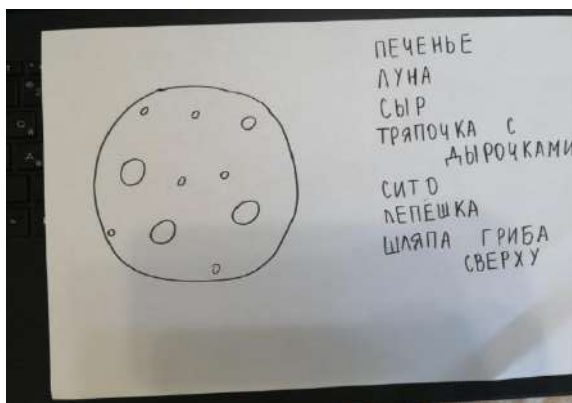 ПЕЧЕНЬЕ
ЛУНА
СЫР
ТРЯПОЧКА С
ДЫРОЧКАМИ
СИТО
ЛЕПЁШКА
ШЛЯПА ГРИБА
СВЕРХУ